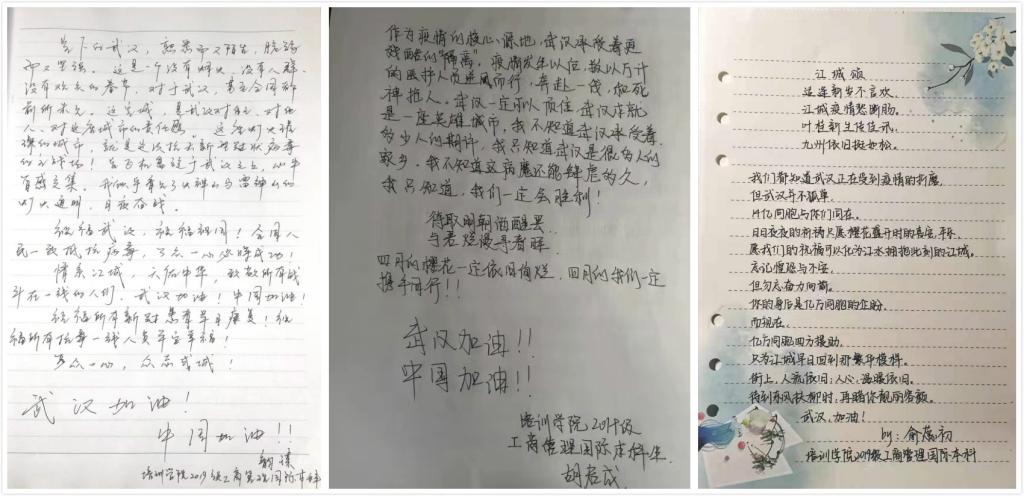 当下的武汉，熟悉而又陌生，脆弱
而又坚强。这是一个没有烟火、没有人群、
没有欢乐的春节，对于武汉，甚至全国都
前所未见。这座城，是武汉对自己、对他
人、对这座城市的责任感，这座灯火
的城市，就是
有感交集。
灯火通明，日夜奋战。
祝福武汉，祝福祖国！全国人
民一致抵抗病毒，万众一心必将成功！
情系江城，天佑中华，致敬所有战
斗在一线的人们，武汉加油！中国加油！
祝福所有新冠患者早日康复！祝
福所有抗毒一线人员平安幸福！
万众一心，众志成城！
武汉加油！
中国加油！！
培训学院2019级工商管理国际本科生
作为疫情的核心源地，武汉承受着更
残酷的“隔离”。疫情发生以位，数以万计
的医护人员逆风而行，奔赴一线，和死
神抢人。武汉一定可以顶住，武汉本就
是一座英雄城市。我不知道武汉承受着
多少人的期许，我只知道武汉是很多人的
家乡，我不知道这病魔还能肆虐多久，
我只知道，我们一定会胜利！
待取明朝酒醒罢
与君烂漫寻春晖
四月的樱花一定依旧绚烂，四月的我们一定
携手同行！！
武汉加油！！
中国加油！！
培训学院2019级
工商管理国际本科生
胡君成
江城颂
适逢新岁不言欢，
江城疫情愁断肠。
叶枝新生传佳讯，
九州依旧挺如松。
我们都知道武汉正在受到疫情的折磨，
但武汉并不孤单，
14亿同胞与你们同在。
日日夜夜的祈祷只愿樱花盛开时的喜乐、平安，
愿我们的祝福可以化为江水拥抱此刻的江城。
忘记惶恐与不安，
但勿忘奋力向前。
你的身后是亿万同胞的企盼。
而现在，
亿万同胞四方援助，
只为江城早日回到那繁华模样。
街上，人流依旧；人心，温暖依旧。
待到东风扶柳时，再睹你靓丽容颜。
武汉，加油！
by：俞蕊初
培训学院2019级工商管理国际本科